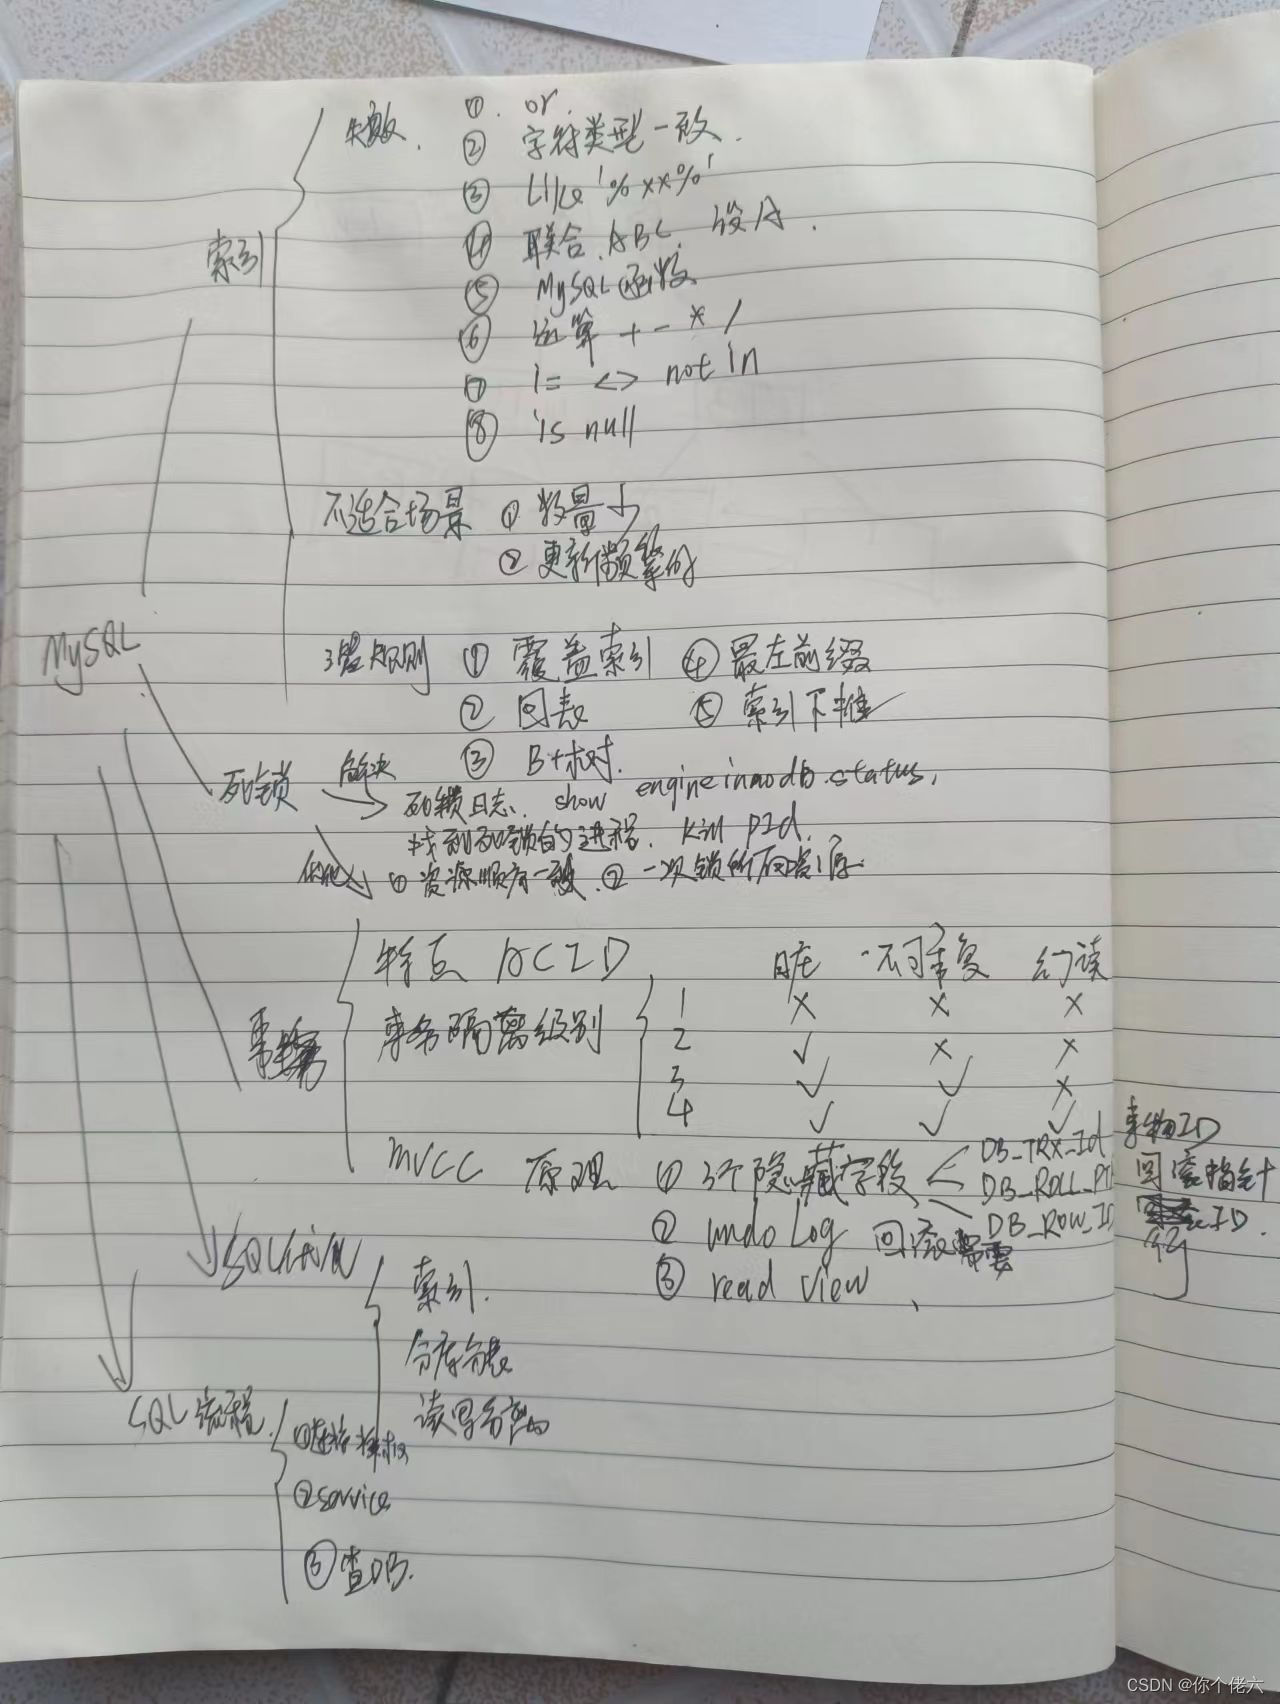 失效. ①. or.
② 字符类型一致.
③ Like '%xx%'
索引 ④ 联合.ABC. 没A.
⑤ MySQL函数
⑥ 运算 + - * /
⑦ != <> not in
⑧ is null
不适合场景 ① 数量小
② 更新频繁的
MySQL
规则 ① 覆盖索引 ④ 最左前缀
② 回表 ⑤ 索引下推
③ B+树.
死锁 解决 死锁日志. show engine innodb status,
找到死锁的进程. kill pId.
① 资源顺序一致. ② 一次锁所有资源.
特点 ACID 脏 不可重复 幻读
1 × × ×
事务 事务隔离级别 2 ✓ × ×
3 ✓ ✓ ×
4 ✓ ✓ ✓
MVCC 原理 ① 3个隐藏字段 DB_TRX_Id 事物ID
DB_ROLL_PT 回滚指针
② undo Log 回滚需要 DB_ROW_ID 行 ID.
③ read view
SQL优化 索引.
分库分表
读写分离
SQL流程.
② service
③ 查DB.
CSDN @你个佬六